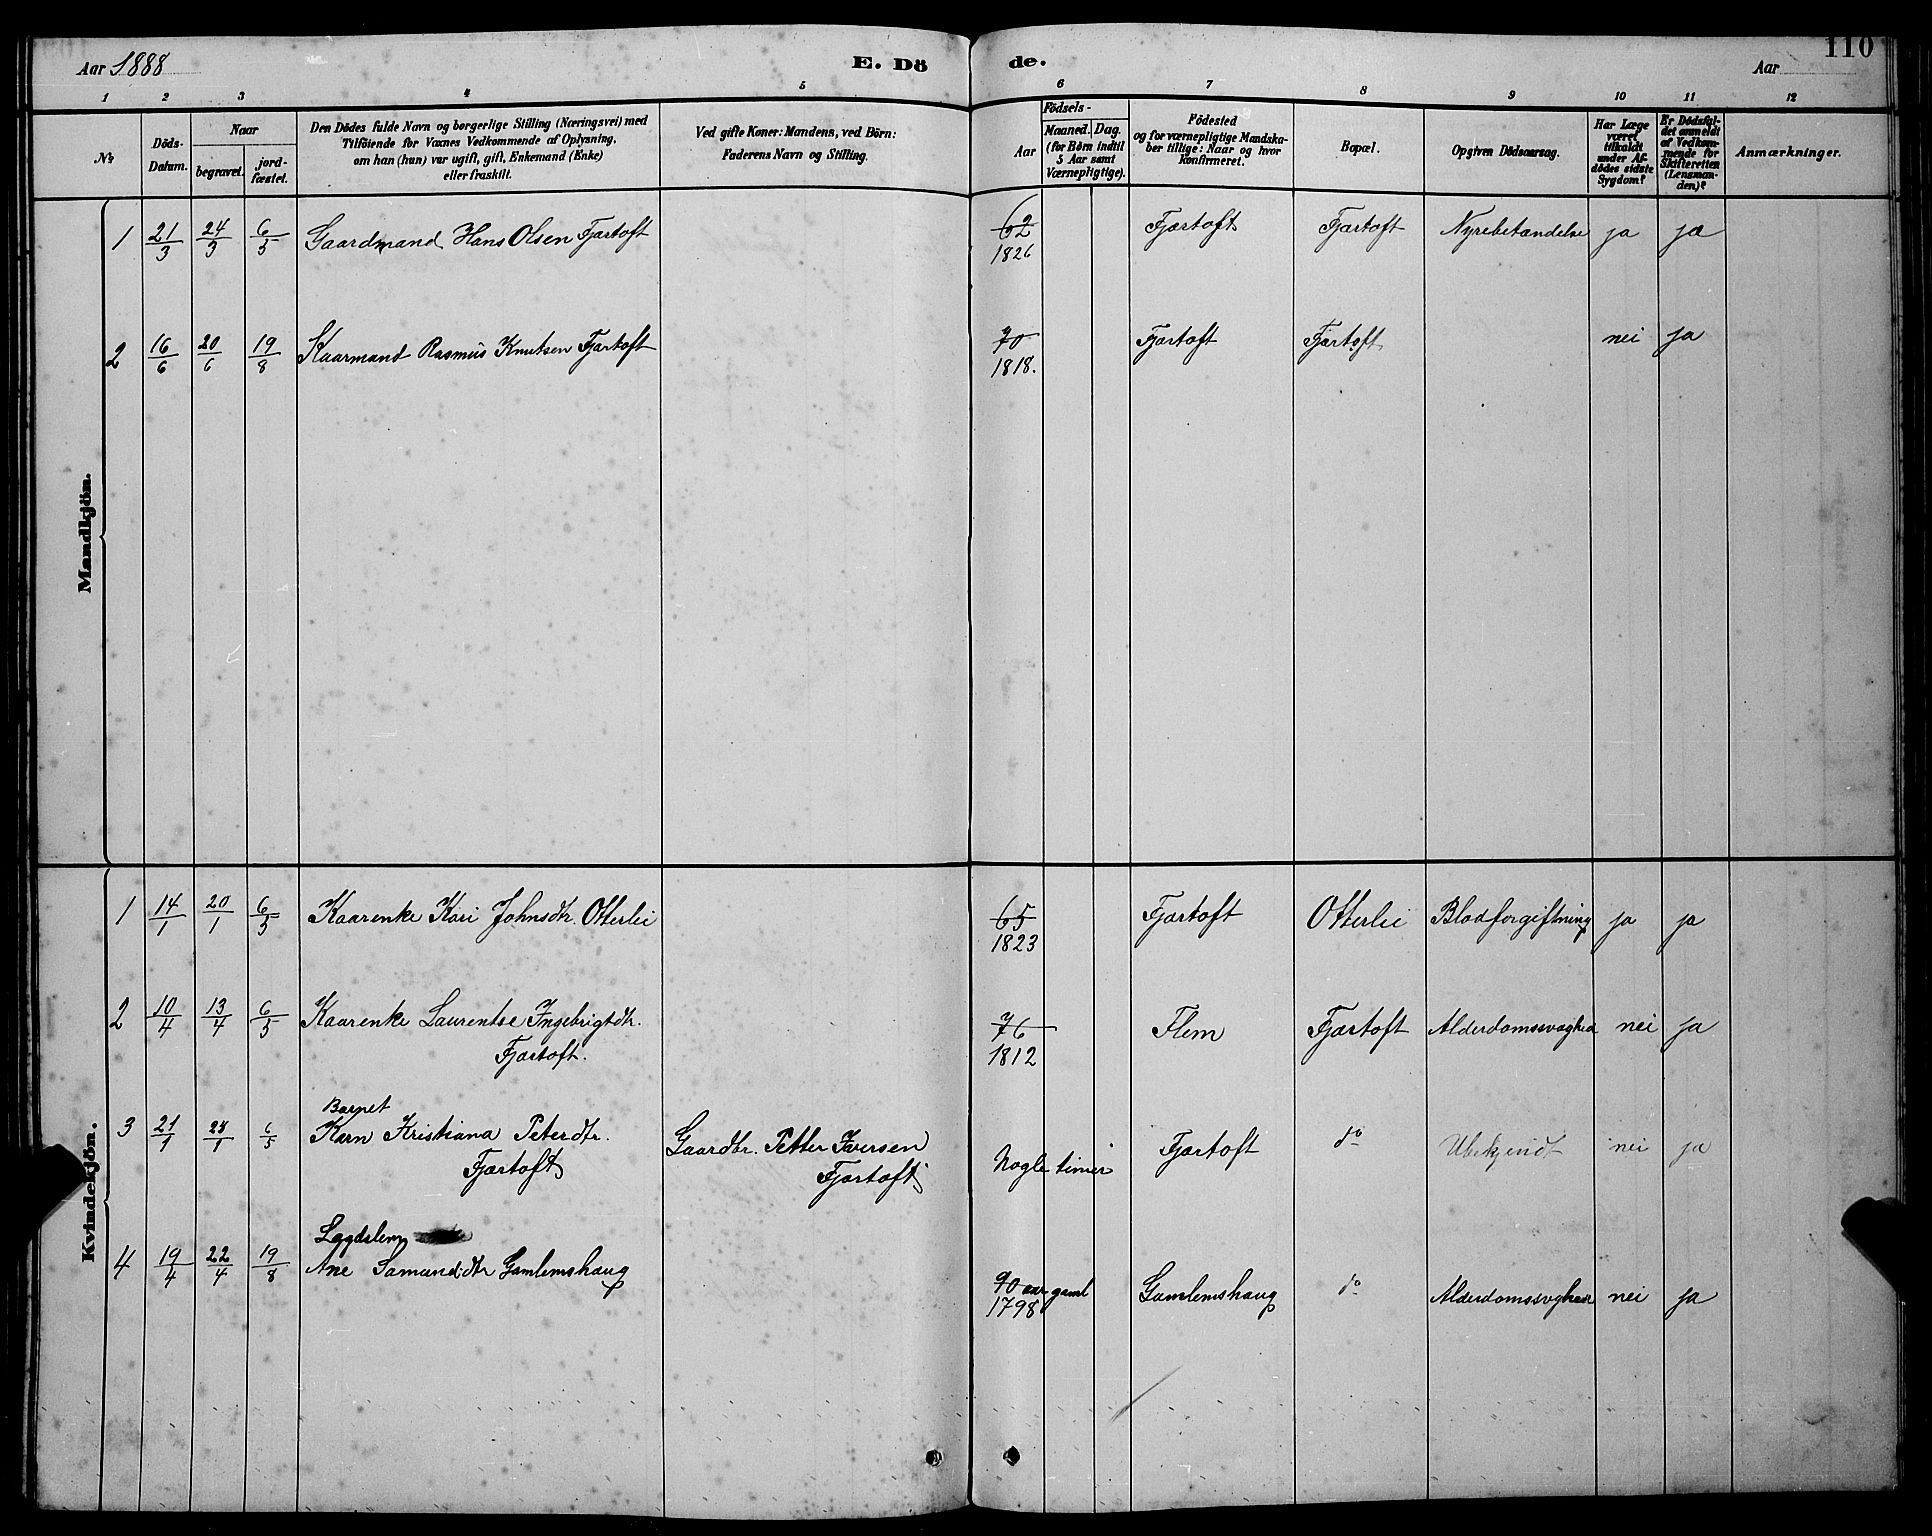 Aar 1888
E. Dö
de.
Aar
110
1 2 3 4 5 6 7 8 9 10 11 12
№
Döds-
Datum.
Naar
begravet.
jord-
fæstet.
Den Dödes fulde Navn og borgerlige Stilling (Næringsvei) med
Tilföiende for Voxnes Vedkommende af Oplysning,
om han (hun) var ugift, gift, Enkemand (Enke)
eller fraskilt.
Ved gifte Koner: Mandens, ved Börn:
Faderens Navn og Stilling.
Aar
Födsels-
Maaned. Dag.
(for Börn indtil
5 Aar samt
Værnepligtige).
Födested
og for værnepligtige Mandska-
ber tillige: Naar og hvor
Konfirmeret.
Bopæl.
Opgiven Dödsaarsag.
Har Læge
været
tilkaldt
under Af-
dödes sidste
Sygdom?
Er Dödsfal-
det anmeldt
af Vedkom-
mende for
Skifteretten
(Lensman-
den)?
Anmærkninger.
Mandkjön.
1 21/3 24/3 6/5 Gaardmand Hans Olsen Fjærtoft 62 Fjærtoft Fjærtoft Nyrebetændelse ja ja
1826
2 16/6 20/6 19/8 Kaarmand Rasmus Knutsen Fjærtoft 70 Fjærtoft Fjærtoft nei ja
1818.
Kvindekjön.
1 14/1 20/1 6/5 Kaarenke Kari Johnsdtr. Otterlei 65 Fjærtoft Otterlei Blodforgiftning ja ja
1823
2 10/4 13/4 6/5 Kaarenke Laurentse Ingebrigtdtr. 76 Flem Fjærtoft Alderdomssvaghed nei ja
Fjærtoft. 1812
Barnet
3 21/1 /1 6/5 Karn Kristiana Peterdtr. Gaardbr. Petter Iversen Fjærtoft do Ubekjendt nei ja
Fjærtoft Fjærtoft Nogle timer
Lægdslem
4 19/4 22/4 19/8 Ane Samundsdtr Gamlemshaug 90 aar gaml Gamlemshaug do Alderdomssvghed nei ja
1798